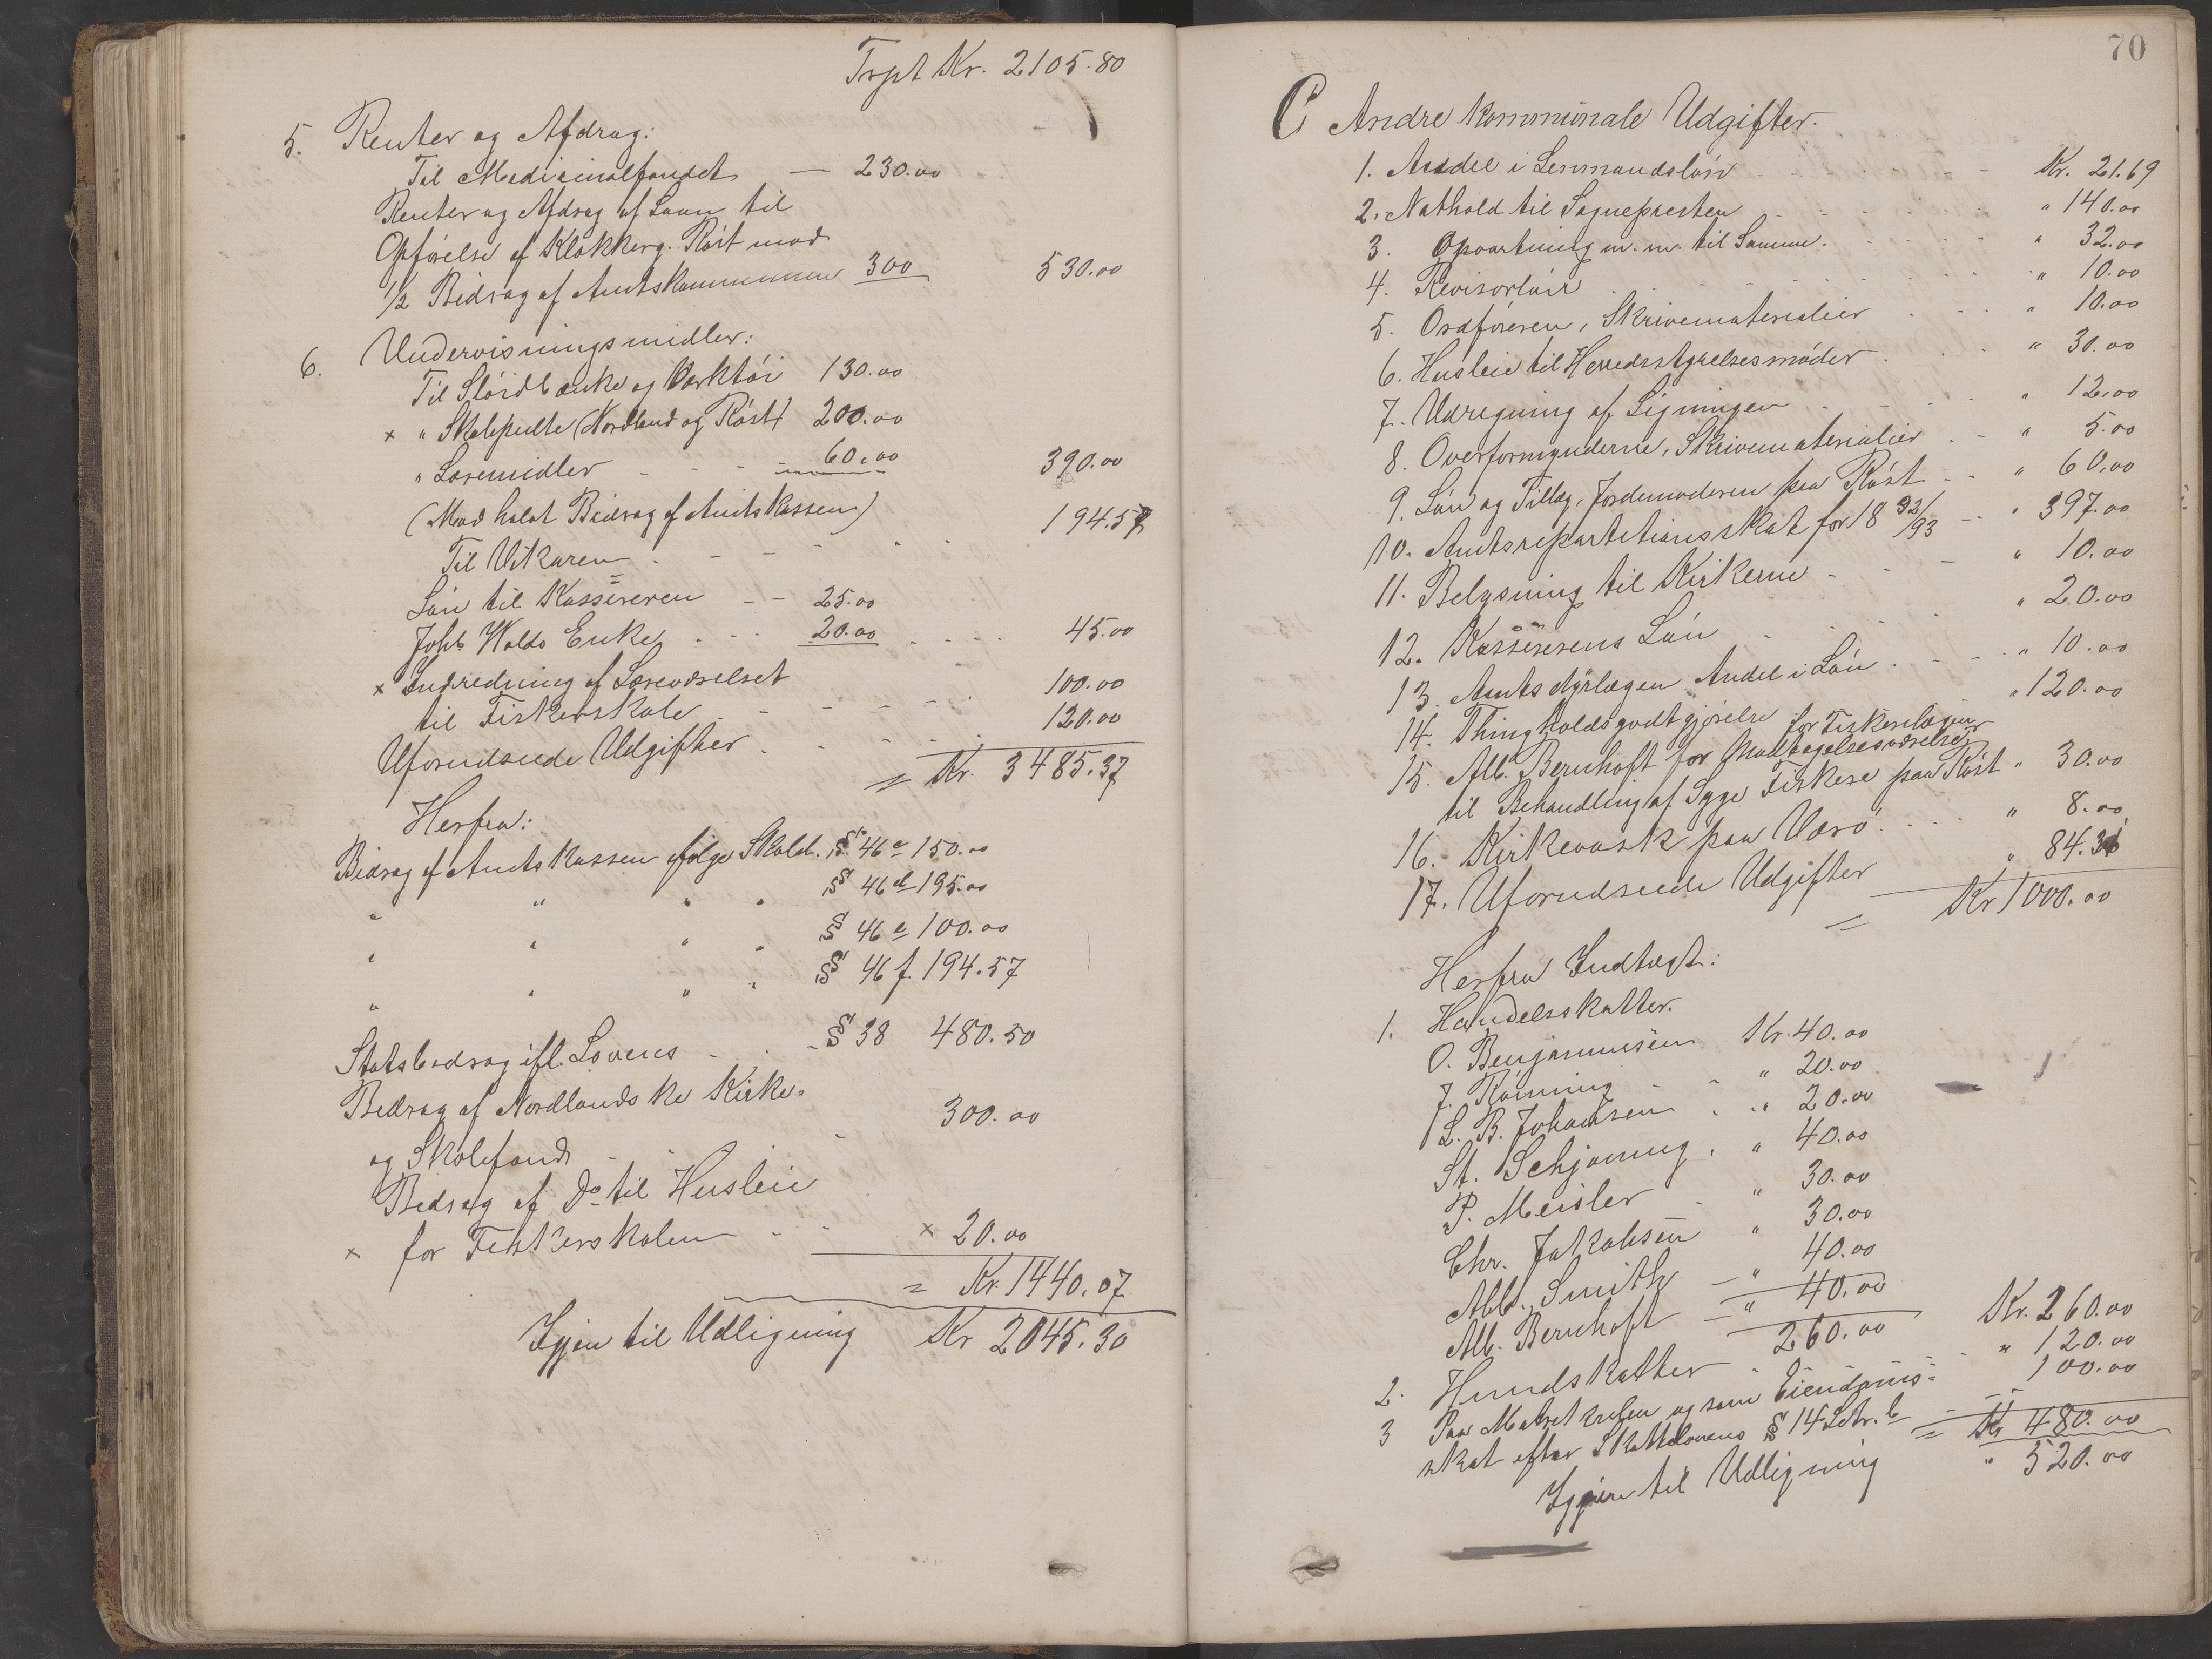 Trpt Kr. 2105.80
5. Renter og Afdrag:
Til Medicinalfondet — 230.00
Renter og Afdrag af Laan til
Opførelse af Klokkerg. Røst mod
1/2 Bidrag af Amtskommunen 300 530.00
6. Undervisningsmidler:
Til Sløidbænke og Værktøi 130.00
x " Skolepulte (Nordland og Røst) 200.00
" Læremidler - - - 60.00 390.00
(Mod halvt Bidrag af Amtskassen)
Til Vikaren - - - 194.57
Løn til Kassereren - - 25.00
Johs Waldo Enke - - - 20.00 - - - 45.00
x Indredning af Læreværelset
til Fiskerskole - - - - 100.00
Uforudseede Udgifter - - - - 120.00
= Kr. 3485.37
Herfra:
Bidrag af Amtskassen ifølge Skolel. § 46 c 150.00
" " " " § 46 d 195.00
" " " " § 46 e 100.00
" " " " § 46 f 194.57
Statsbidrag ifl. Lovens - - § 38 480.50
Bidrag af Nordlandske Kirke-
og Skolefond - - - 300.00
Bidrag af Do til Husleie
x for Fiskerskolen - - x 20.00
= Kr. 1440.07
Igjen til Udligning Kr 2045.30
70
C Andre kommunale Udgifter.
1. Anddel i Lensmandsløn - - - - Kr. 21.69
2. Nathold til Sognepresten - - - - " 140.00
3. Opvartning m. m. til Samme. - - - " 32.00
4. Revisorløn - - - - " 10.00
5. Ordføreren, Skrivematerialier - - - " 10.00
6. Husleie til Herredsstyrelsesmøder - - - " 30.00
7. Udregning af Ligningen - - - - " 12.00
8. Overformynderne, Skrivematerialier - - " 5.00
9. Løn og Tillæg, Jordemoderen paa Røst - - " 60.00
10. Amtsrepartitionsskat for 18 92/93 - - " 397.00
11. Belysning til Kirkerne - - - " 10.00
12. Kassererens Løn - - - - " 20.00
13. Amtsdyrlægen Andel i Løn - - - " 10.00
14. Thingholdsgodtgjørelse - " 120.00
15. Alb. Bernhoft for Modtagelsesværelse for Fiskerilægen
til Behandling af Syge Fiskere paa Røst " 30.00
16. Kirkevask paa Værø. - - - " 8.00
17. Uforudseede Udgifter " 84.31
= Kr 1000.00
Herfra Indtægt:
1. Handelsskatter.
O. Benjaminsen Kr. 40.00
J. Rønning - - " 20.00
L. B. Johansen - " 20.00
St. Schjøning - " 40.00
P. Meisler - " 30.00
Chr. Jakobsen " 30.00
Alb. Smith - " 40.00
Alb. Bernhoft - " 40.00
260.00 Kr. 260.00
2. Hundskatter - - - " 120.00
3 Paa Matrikulen og som Eiendoms-
skat efter Skattelovens § 14 Litr. b - - 100.00
= Kr 480.00
Igjen til Udligning " 520.00